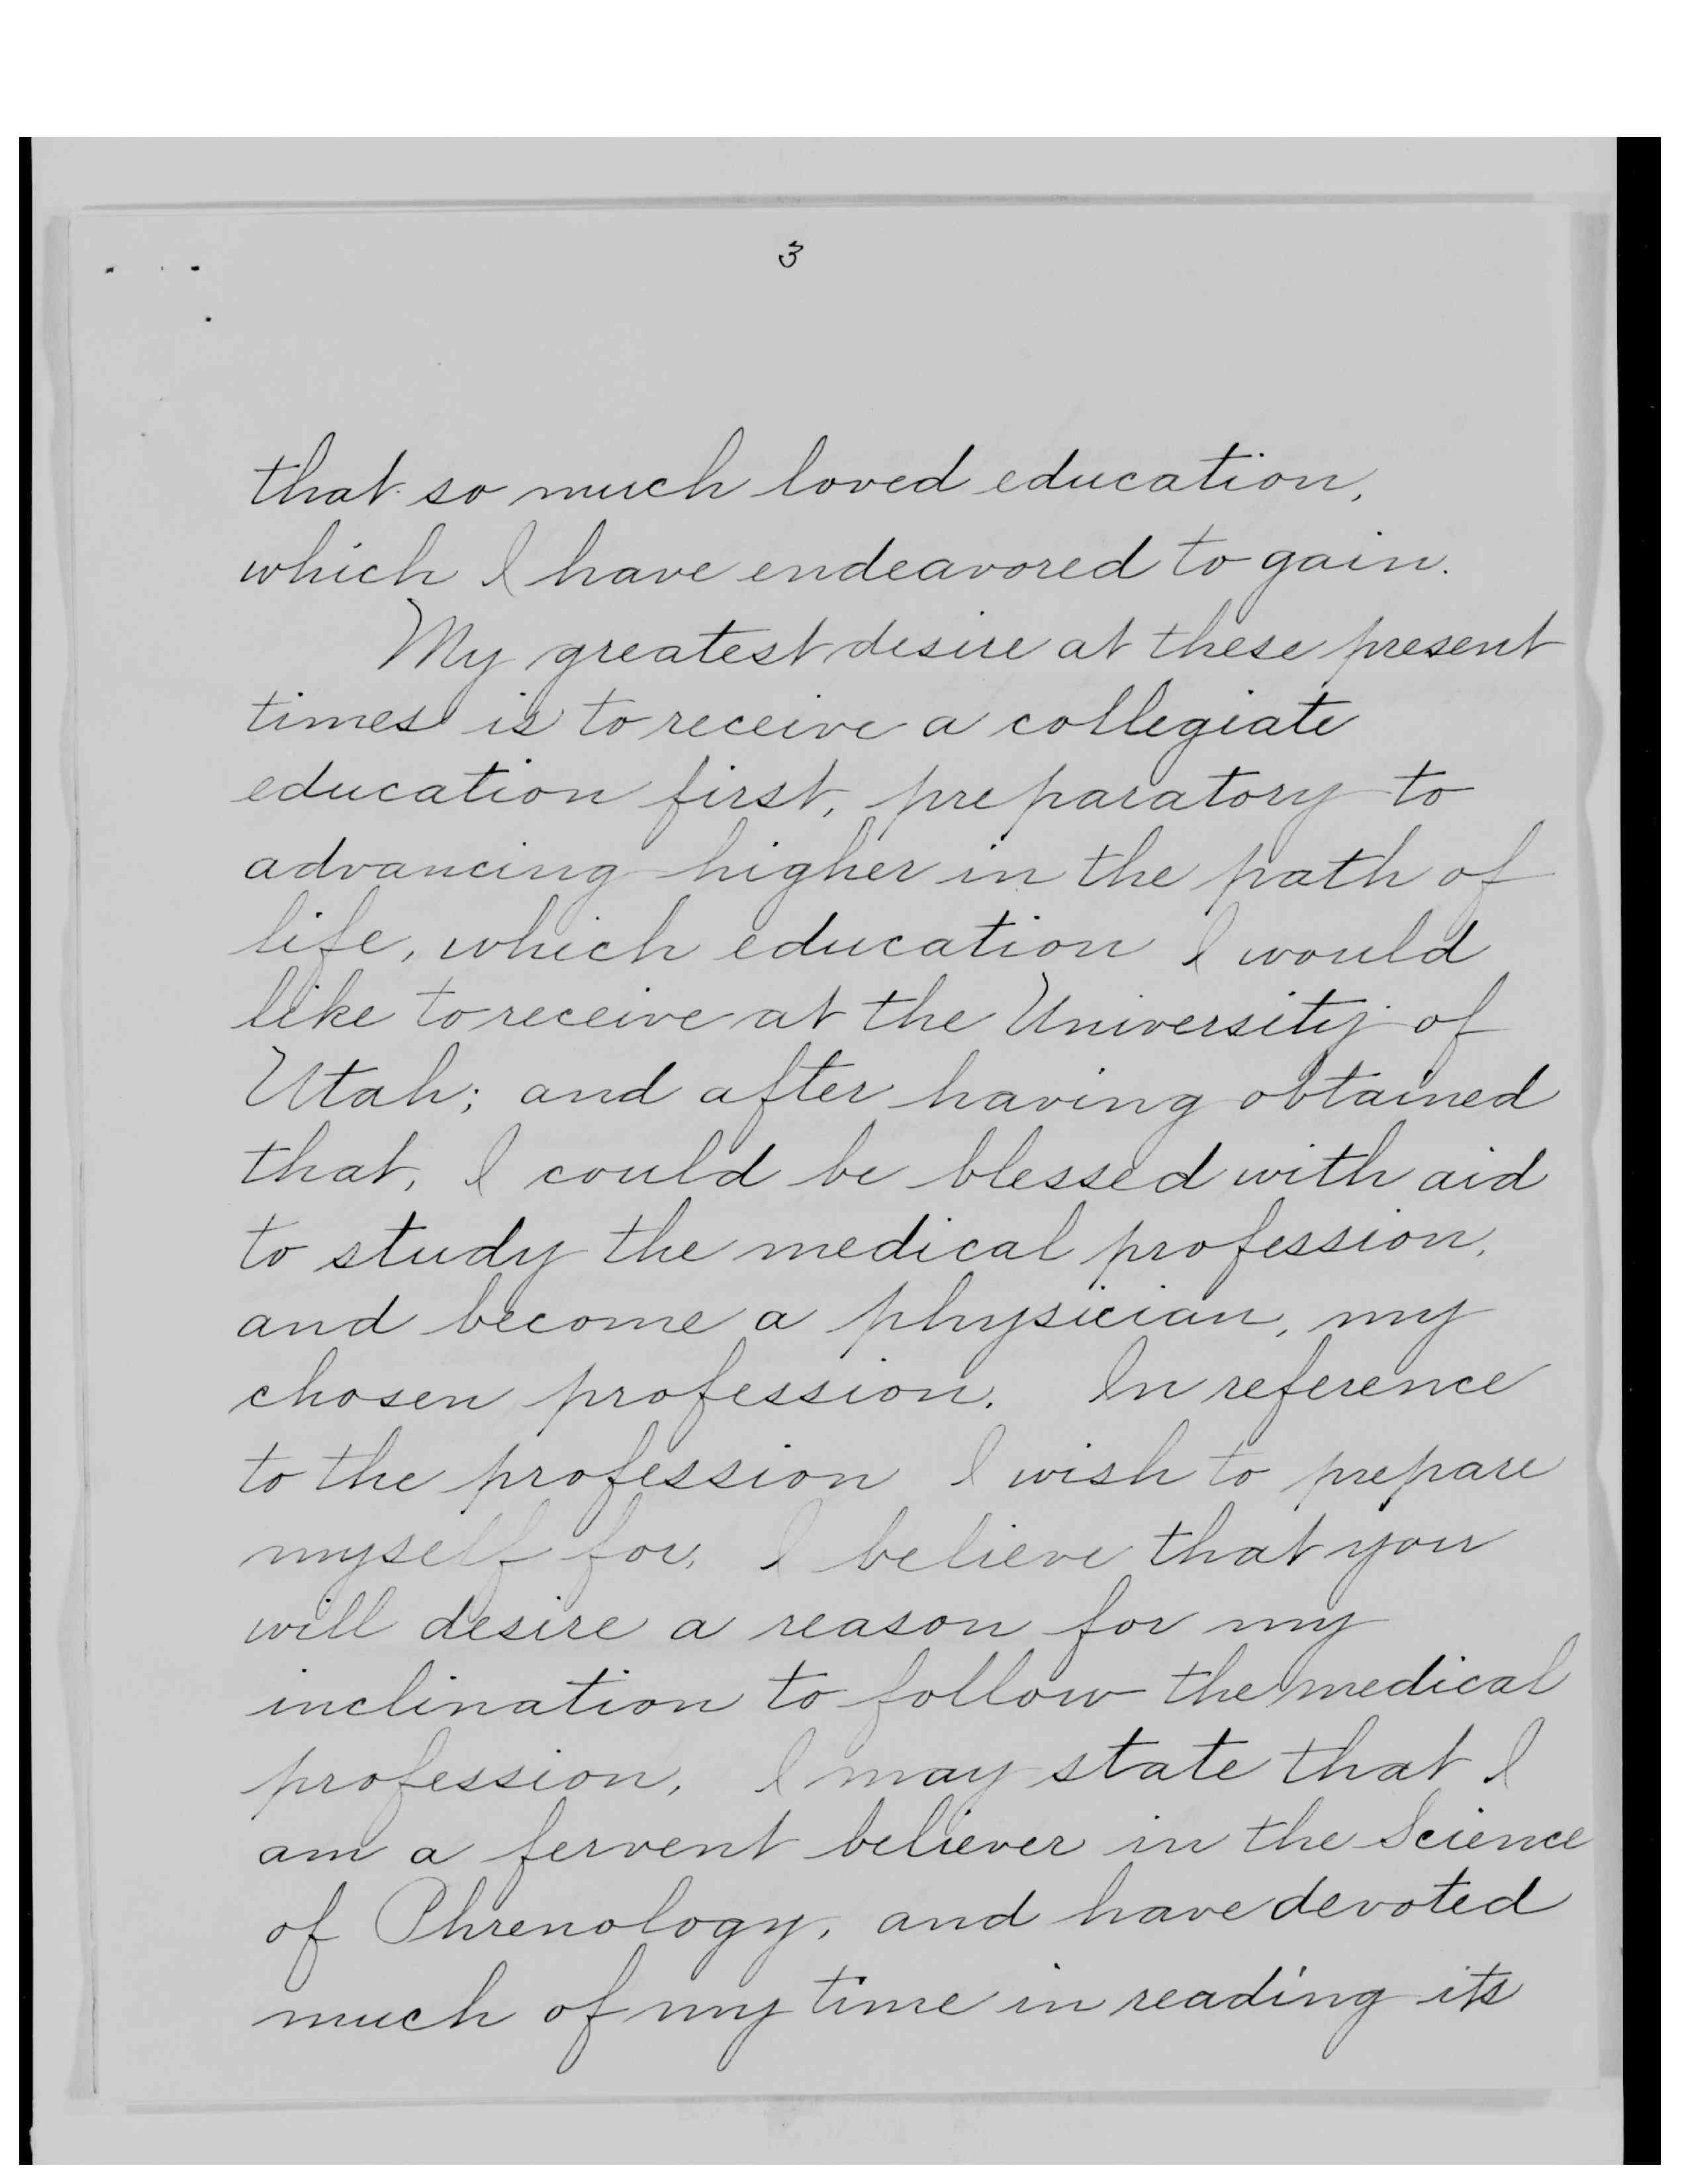 3
that so much loved education,
which I have endeavored to gain.
My greatest desire at these present
times is to receive a collegiate
education first, preparatory to
advancing higher in the path of
life, which education I would
like to receive at the University of
Utah; and after having obtained
that, I could be blessed with aid
to study the medical profession,
and become a physician, my
chosen profession. In reference
to the profession I wish to prepare
myself for, I believe that you
will desire a reason for my
inclination to follow the medical
profession, I may state that I
am a fervent believer in the Science
of Phrenology, and have devoted
much of my time in reading its